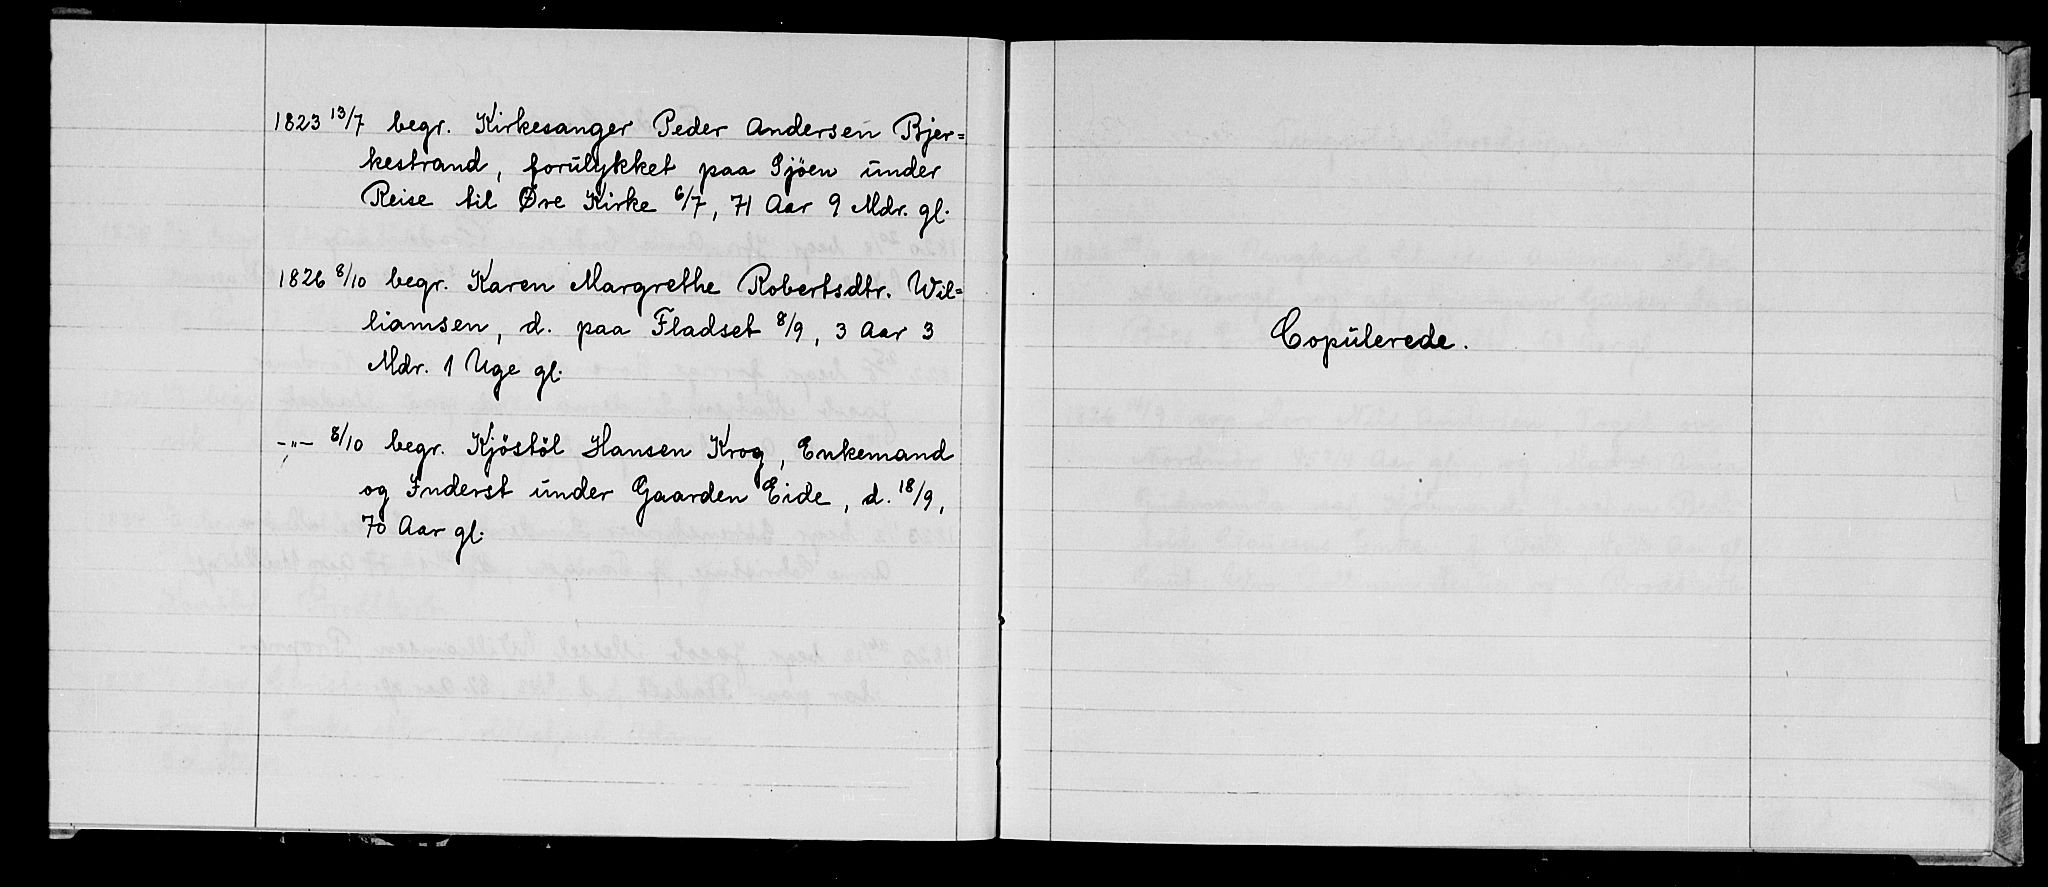 1823 13/7 begr. Kirkesanger Peder Andersen Bjer=
kestrand, forulykket paa Sjöen under
Reise til Øre Kirke 6/7, 71 Aar 9 Mdr. gl.
1826 8/10 begr. Karen Margrethe Robertsdtr. Wil=
liamsen, d. paa Fladset 8/9, 3 Aar 3
Mdr. 1 Uge gl.
-„- 8/10 begr. Kjöstöl Hansen Krog, Enkemand
og Inderst under Gaarden Eide, d. 18/9,
70 Aar gl.
Copulerede.